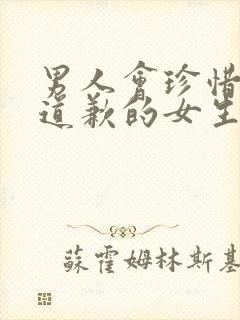 男人會珍惜
道歉的女生
蘇霍姆林斯基